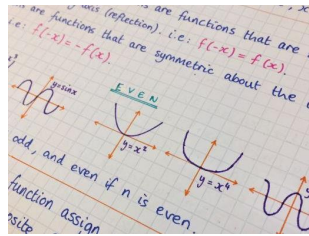 axis (reflection). i.e: f(-x) = f(x).
are functions that are
are functions that are symmetric about the
i.e: f(-x) = -f(x).
y=sinx
EVEN
y=x²
y=x⁴
odd, and even if n is even.
function assign